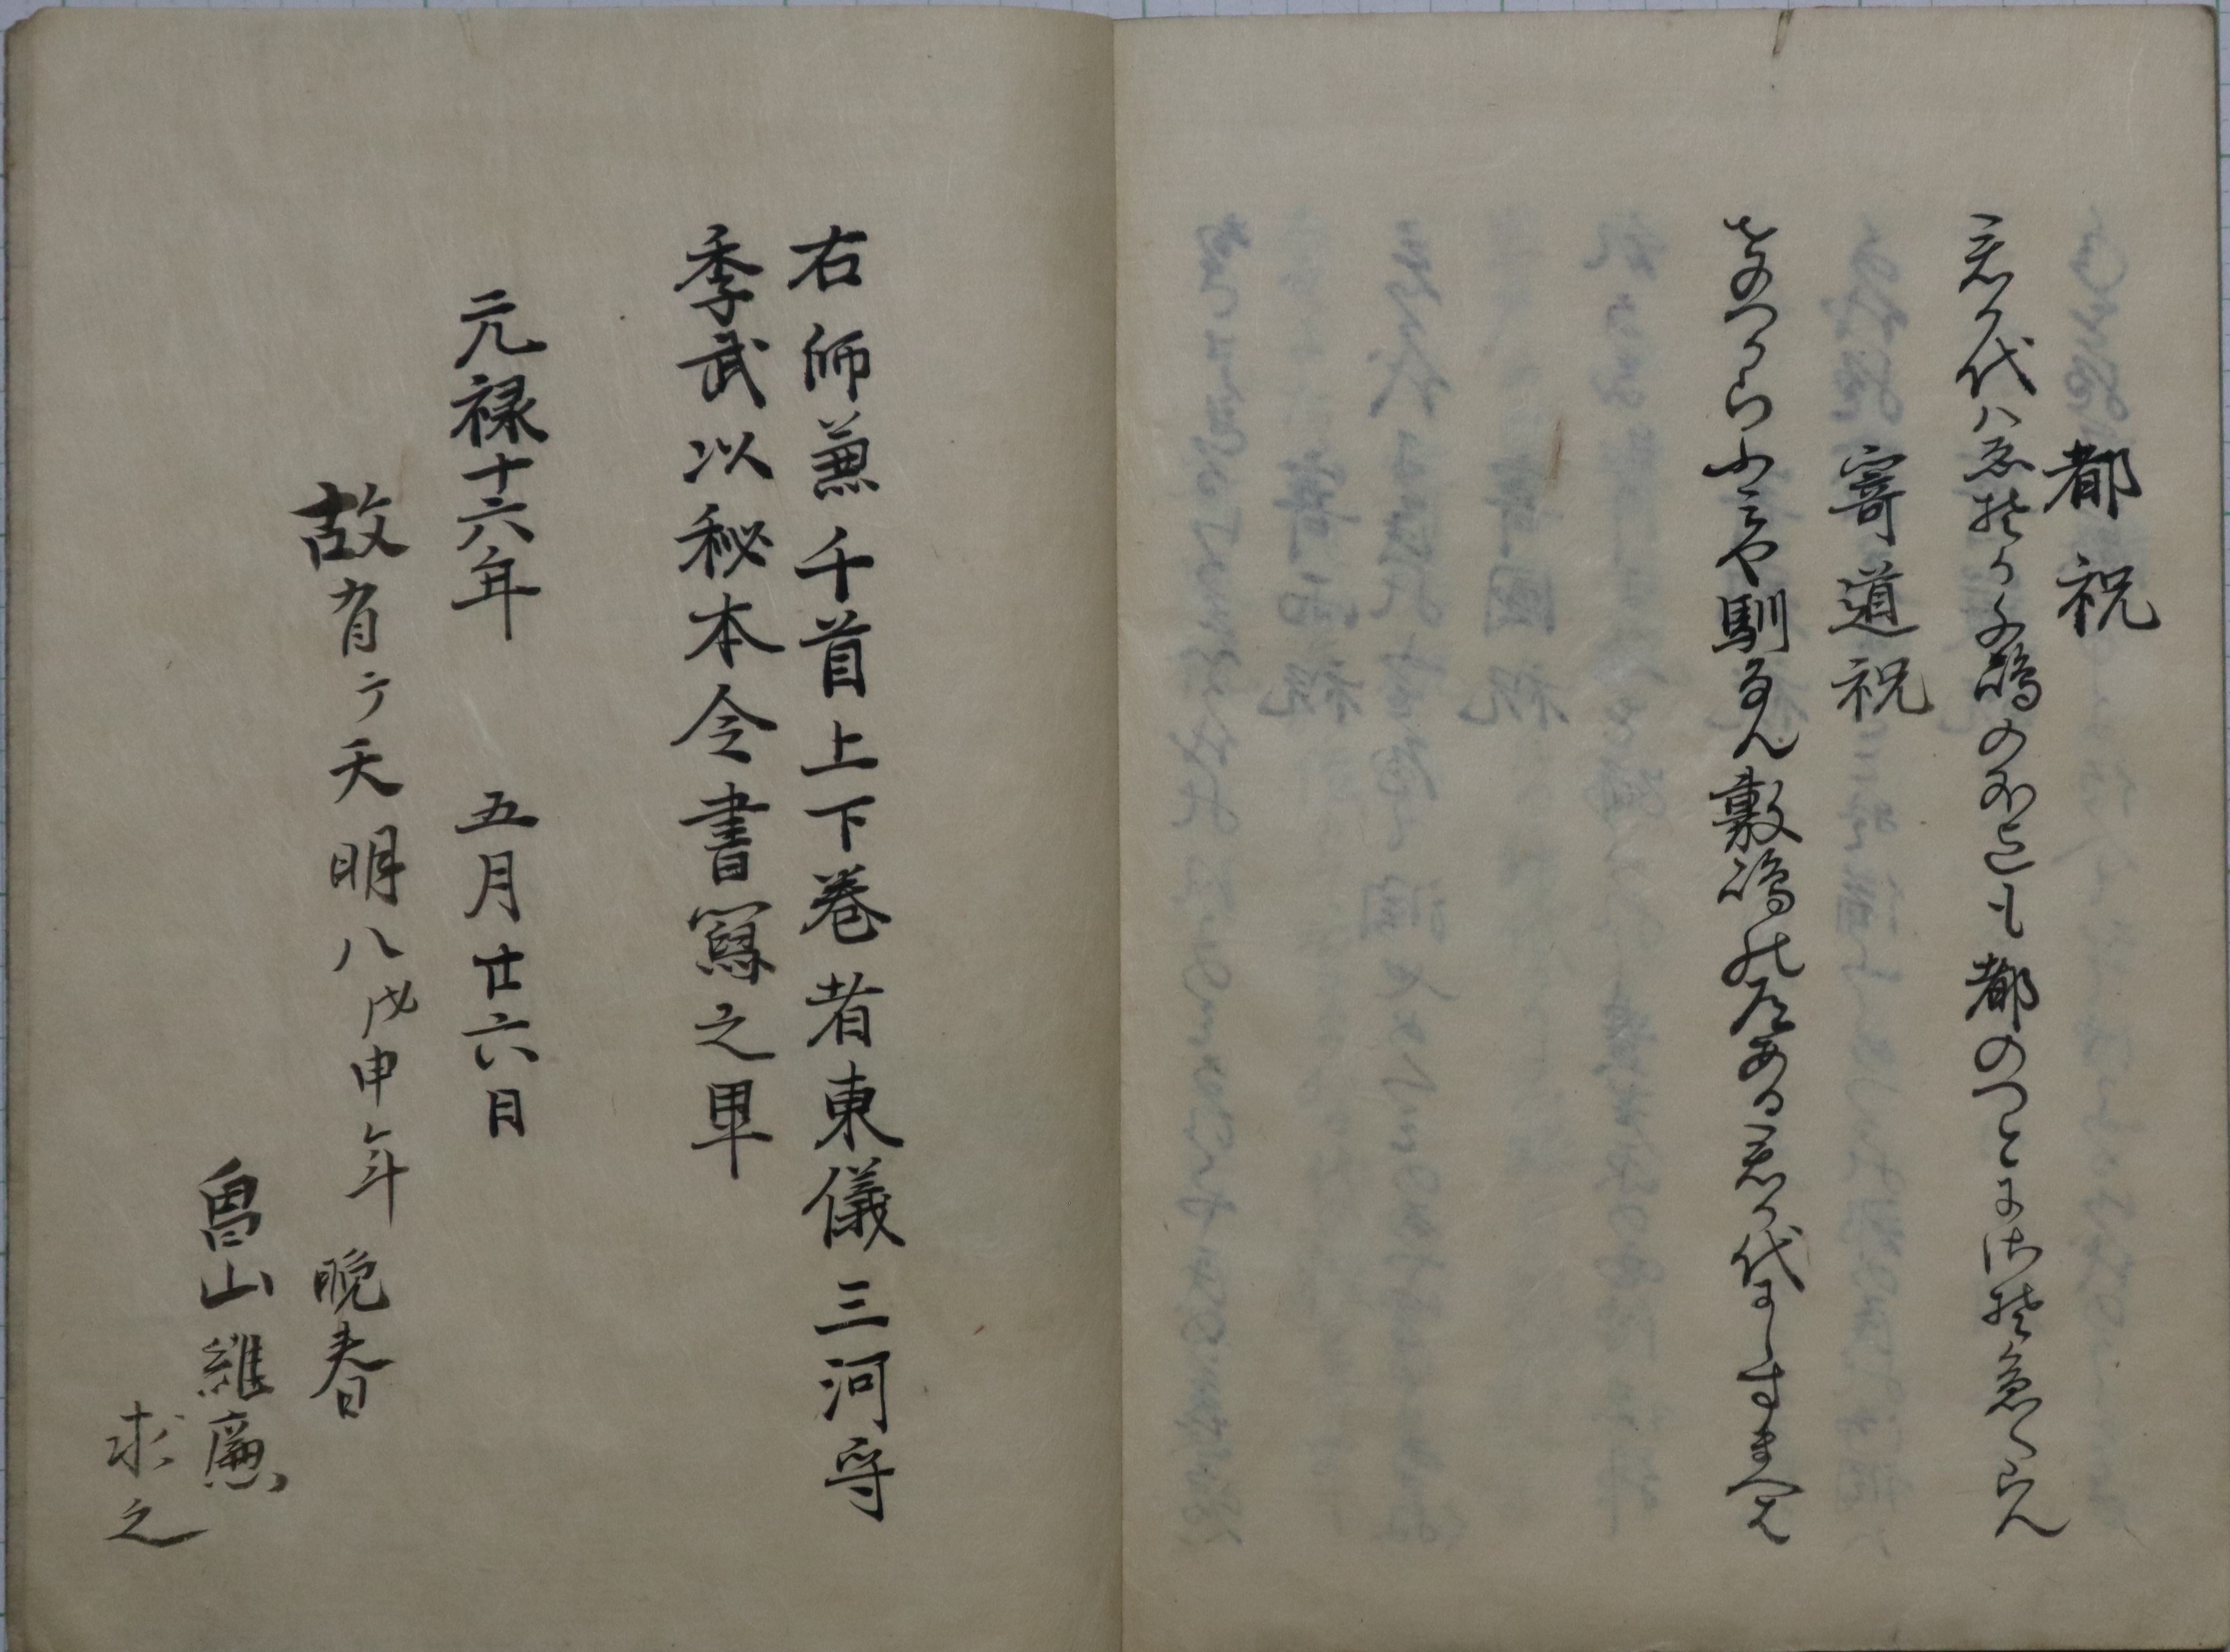 都祝
君か代ハゑそか千嶋の外迄も都のつとにさそ急くらん
寄道祝
をのつからふミや馴なん敷嶋の道ある君か代にしすまへは
右師兼千首上下巻者東儀三河守
季武以秘本令書寫之畢
元禄十六年 五月廿六日
故有テ天明八戊申年 晩春
畠山維廉
求之